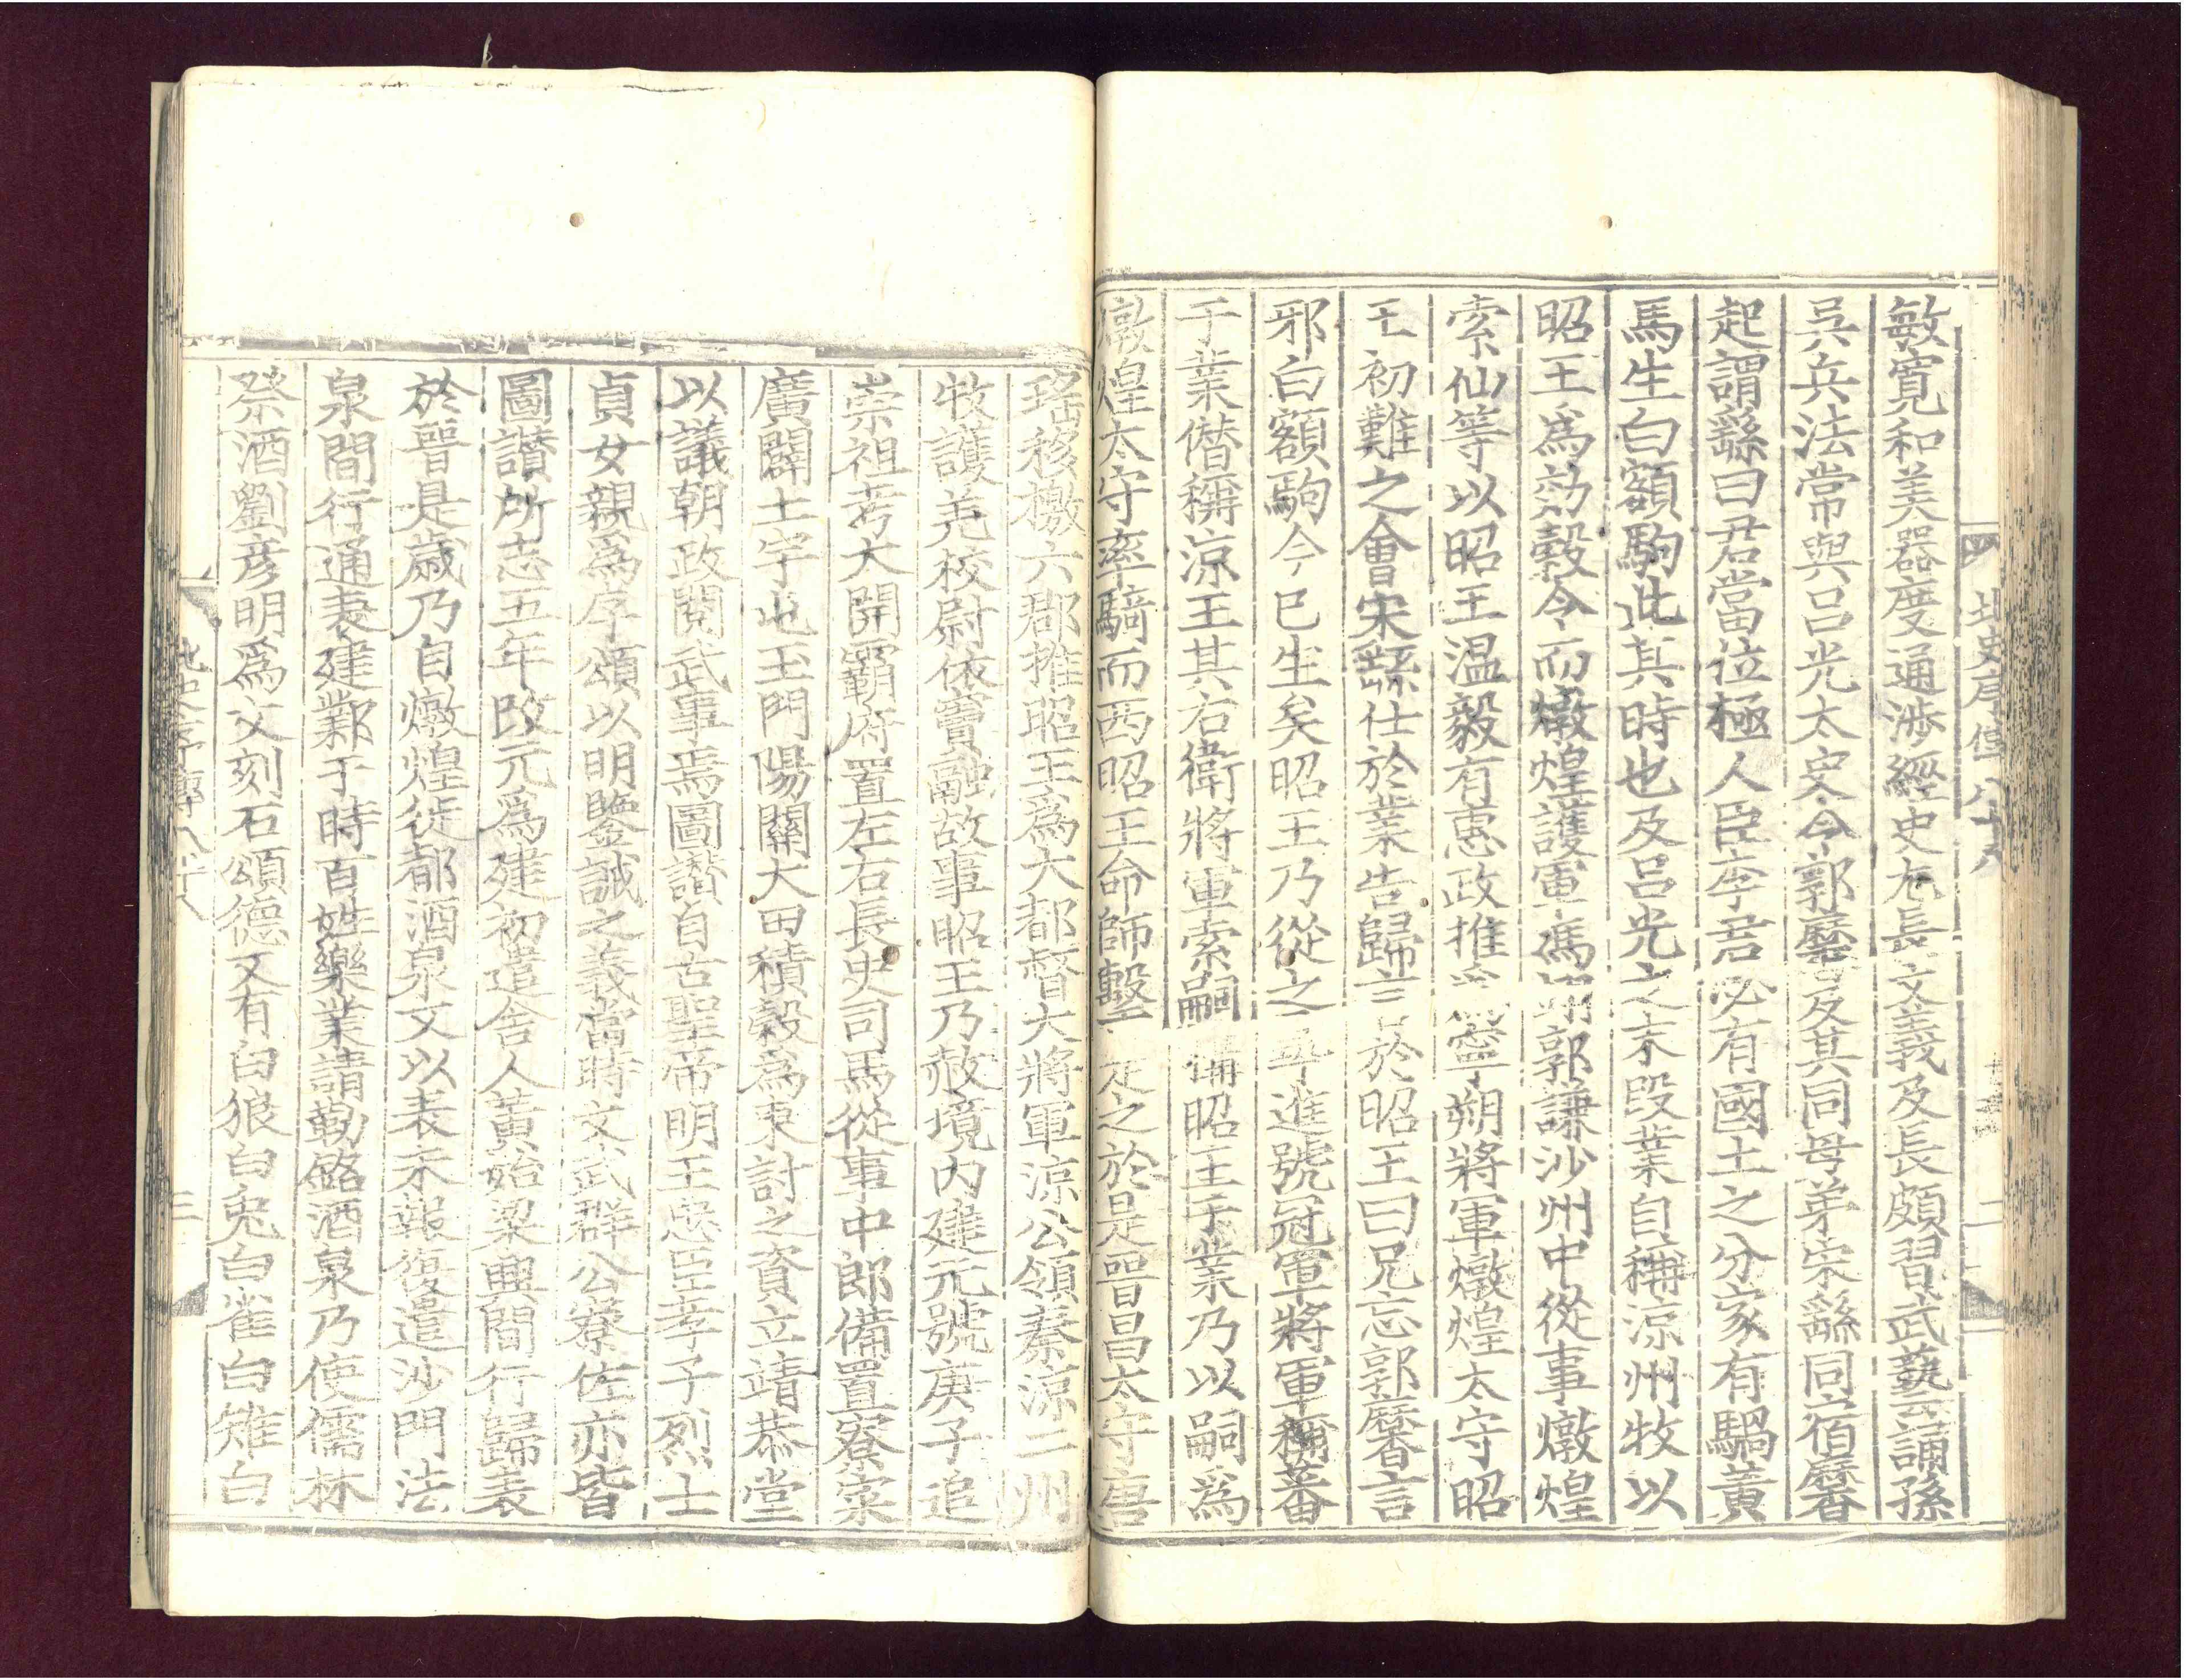 北史序傳八十八
二
敏寬和美器度通涉經史尤長文義及長頗習武藝誦孫
吳兵法常與呂光太史令郭黁及其同母弟宋繇同宿黁
起謂繇曰君當位極人臣李君必有國土之分家有騧黃
馬生白額駒此其時也及呂光之末段業自稱涼州牧以
昭王爲効穀令而燉煌護軍馮郭謙沙州中從事燉煌
索仙等以昭王溫毅有惠政推爲寧朔將軍燉煌太守昭
王初難之會宋繇仕於業告歸言於昭王曰兄忘郭黁言
邪白額駒今已生矣昭王乃從之尋進號冠軍將軍稱蕃
于業業僭稱涼王其右衛將軍索嗣構昭王于業乃以嗣爲
燉煌太守率騎而西昭王命師擊走之於是晉昌太守唐
瑤移檄六郡推昭王爲大都督大將軍涼公領秦涼二州
牧護羌校尉依竇融故事昭王乃赦境內建元號庚子追
崇祖考大開霸府置左右長史司馬從事中郎備置寮寀
廣闢土宇屯玉門陽關大田積穀爲東討之資立靖恭堂
以議朝政閱武事焉圖讃自古聖帝明王忠臣孝子烈士
貞女親爲序頌以明鑒誡之義當時文武群公寮佐亦皆
圖讃所志五年改元爲建初遣舍人黃始梁興間行歸表
於晉是歲乃自燉煌徙都酒泉又以表未報復遣沙門法
泉間行通表建鄴于時百姓樂業請勒銘酒泉乃使儒林
祭酒劉彥明爲文刻石頌德又有白狼白兎白雀白雉白
北史序傳八十八
三